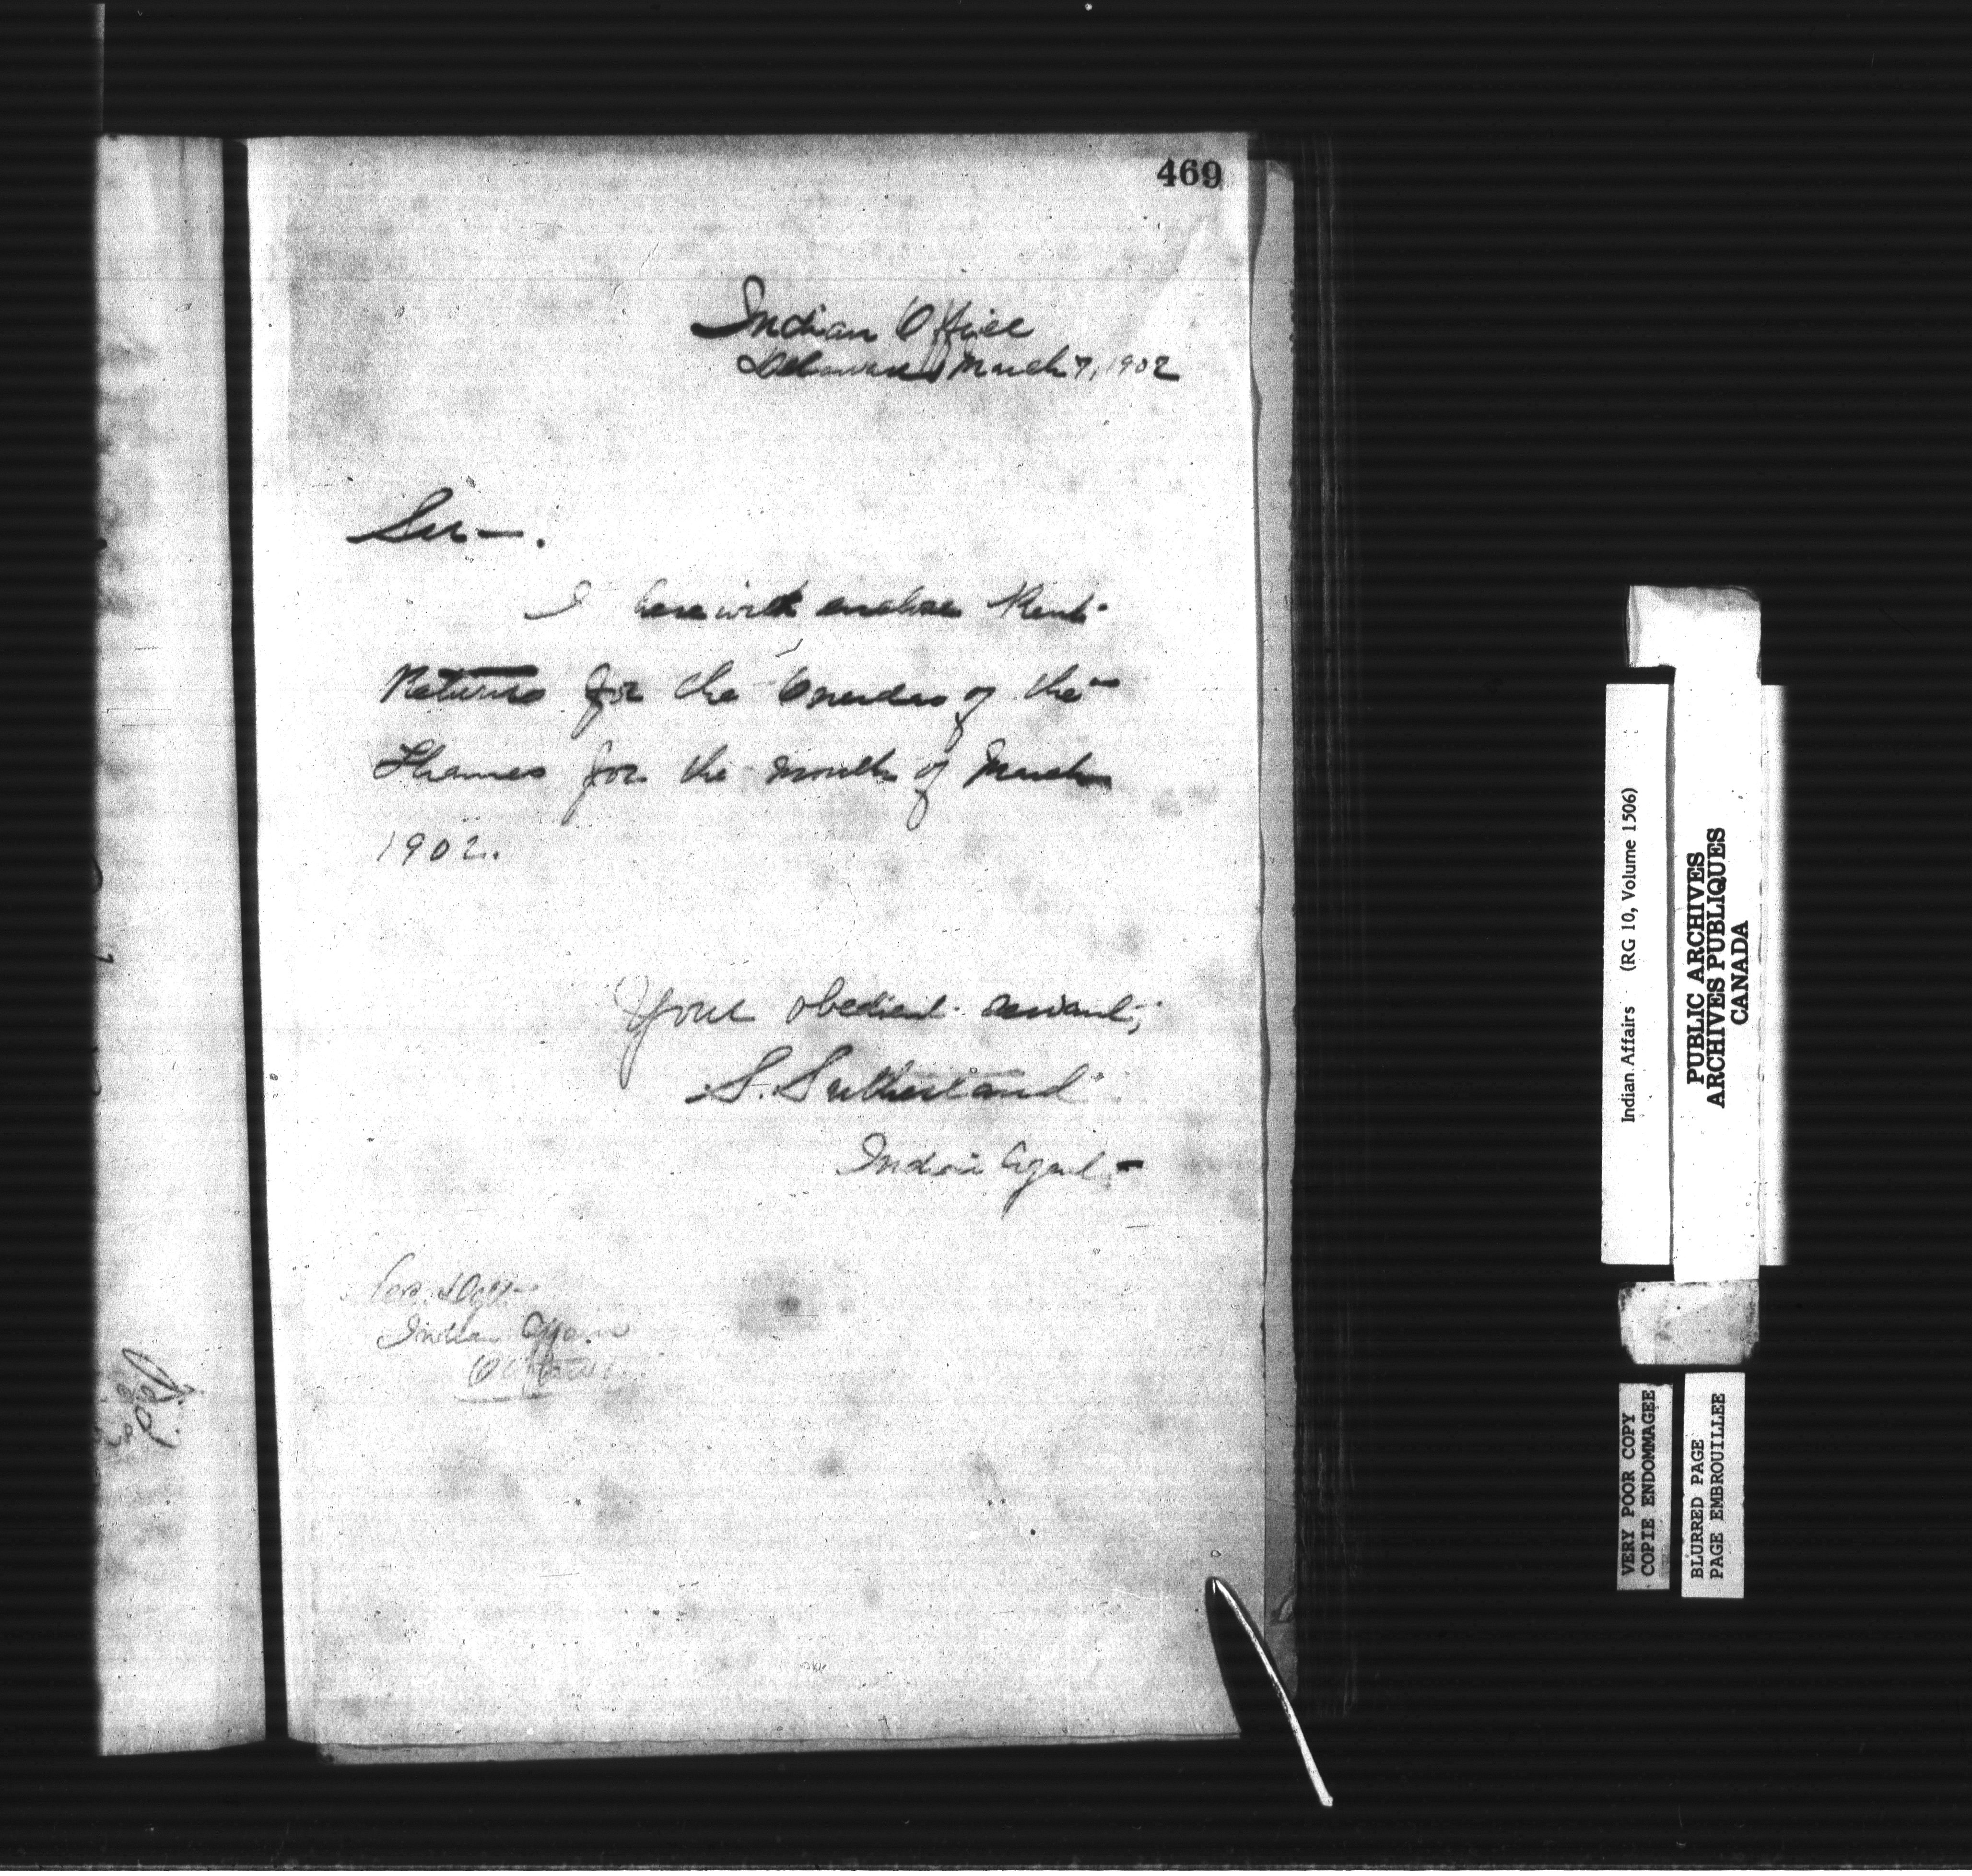 469
Indian Office
Delaware March 7, 1902
Sir—.
I herewith enclose Rent
Returns for the Oneidas of the
Thames for the month of March
1902.
Your obedient servant,
S. Sutherland
Indian Agent
Indian Affairs
Ottawa
Indian Affairs (RG 10, Volume 1506)
PUBLIC ARCHIVES
ARCHIVES PUBLIQUES
CANADA
VERY POOR COPY
COPIE ENDOMMAGEE
BLURRED PAGE
PAGE EMBROUILLEE